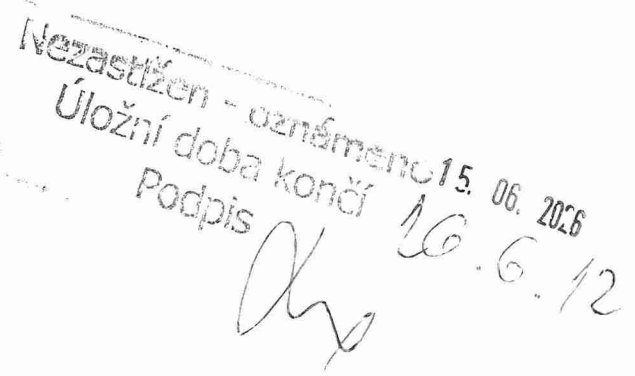 Nezastižen - oznámeno 15. 06. 2026
Úložní doba končí 16.6.12
Podpis